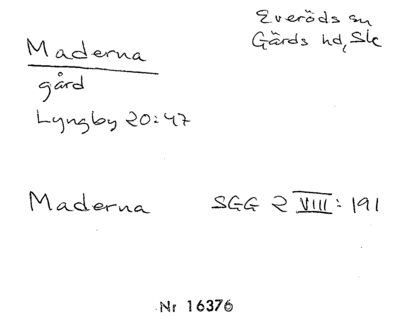 Everöds sn
Gärds hd, Sk
Maderna
gård
Lyngby 20:47
Maderna SGG 2 VIII: 191
Nr 16376